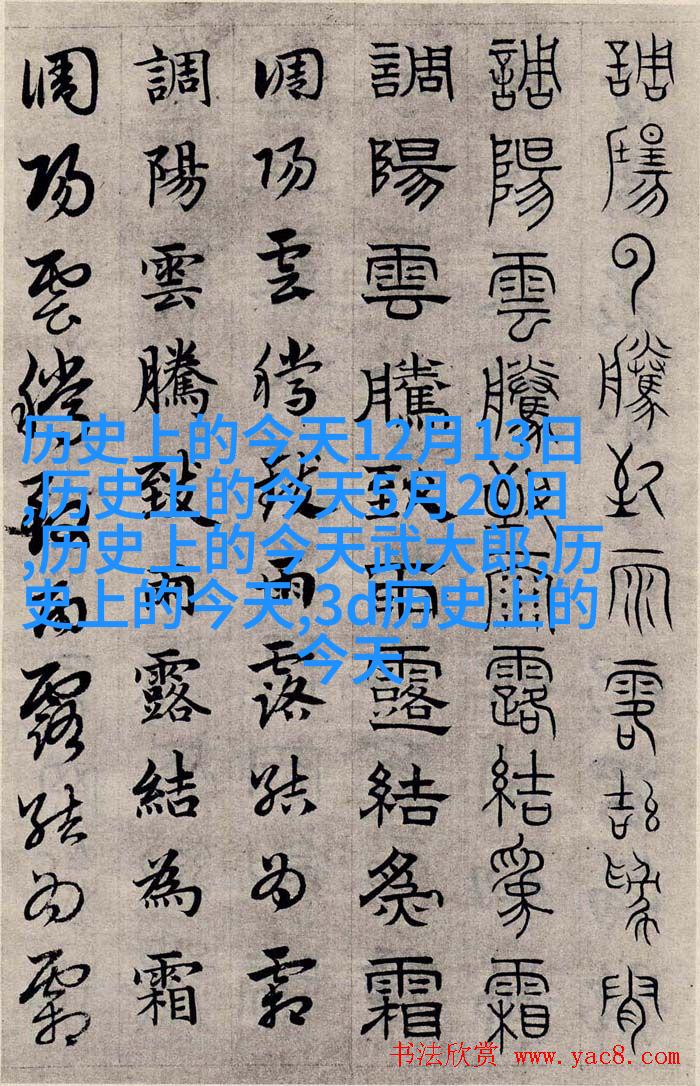 調陽雲騰致雨露結為霜
調陽雲騰致雨露結為霜
調陽雲騰致雨露結為霜
調陽雲騰致雨露結為霜
調陽雲騰致雨露結為霜
調陽雲騰致雨露結為霜
历史上的今天12月13日
,历史上的今天5月20日
,历史上的今天武大郎,历
史上的今天,3d历史上的
今天
书法欣赏 www.yac8.com